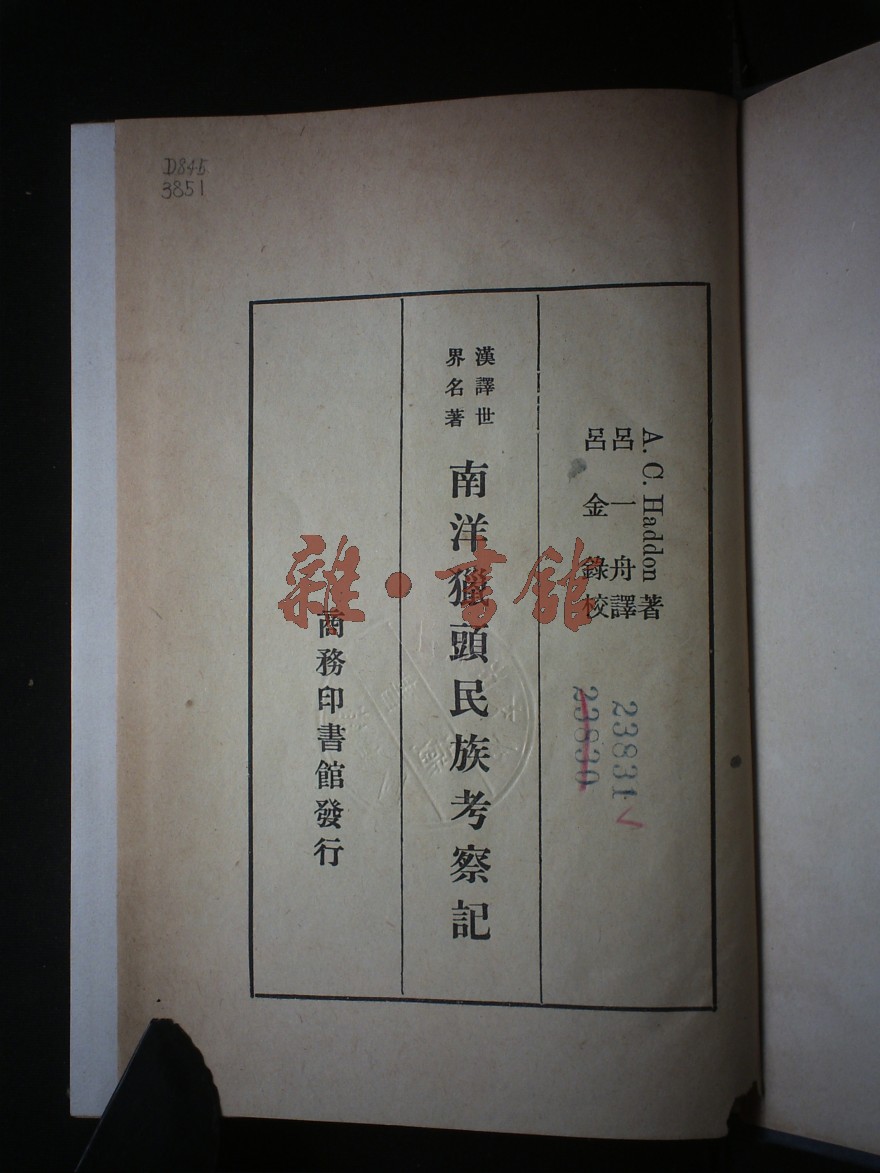 D845
3851
A. C. Haddon 著
呂一舟譯
呂金錄校
23831
23830
漢譯世
界名著
南洋獵頭民族考察記
商務印書館發行
雜·書館